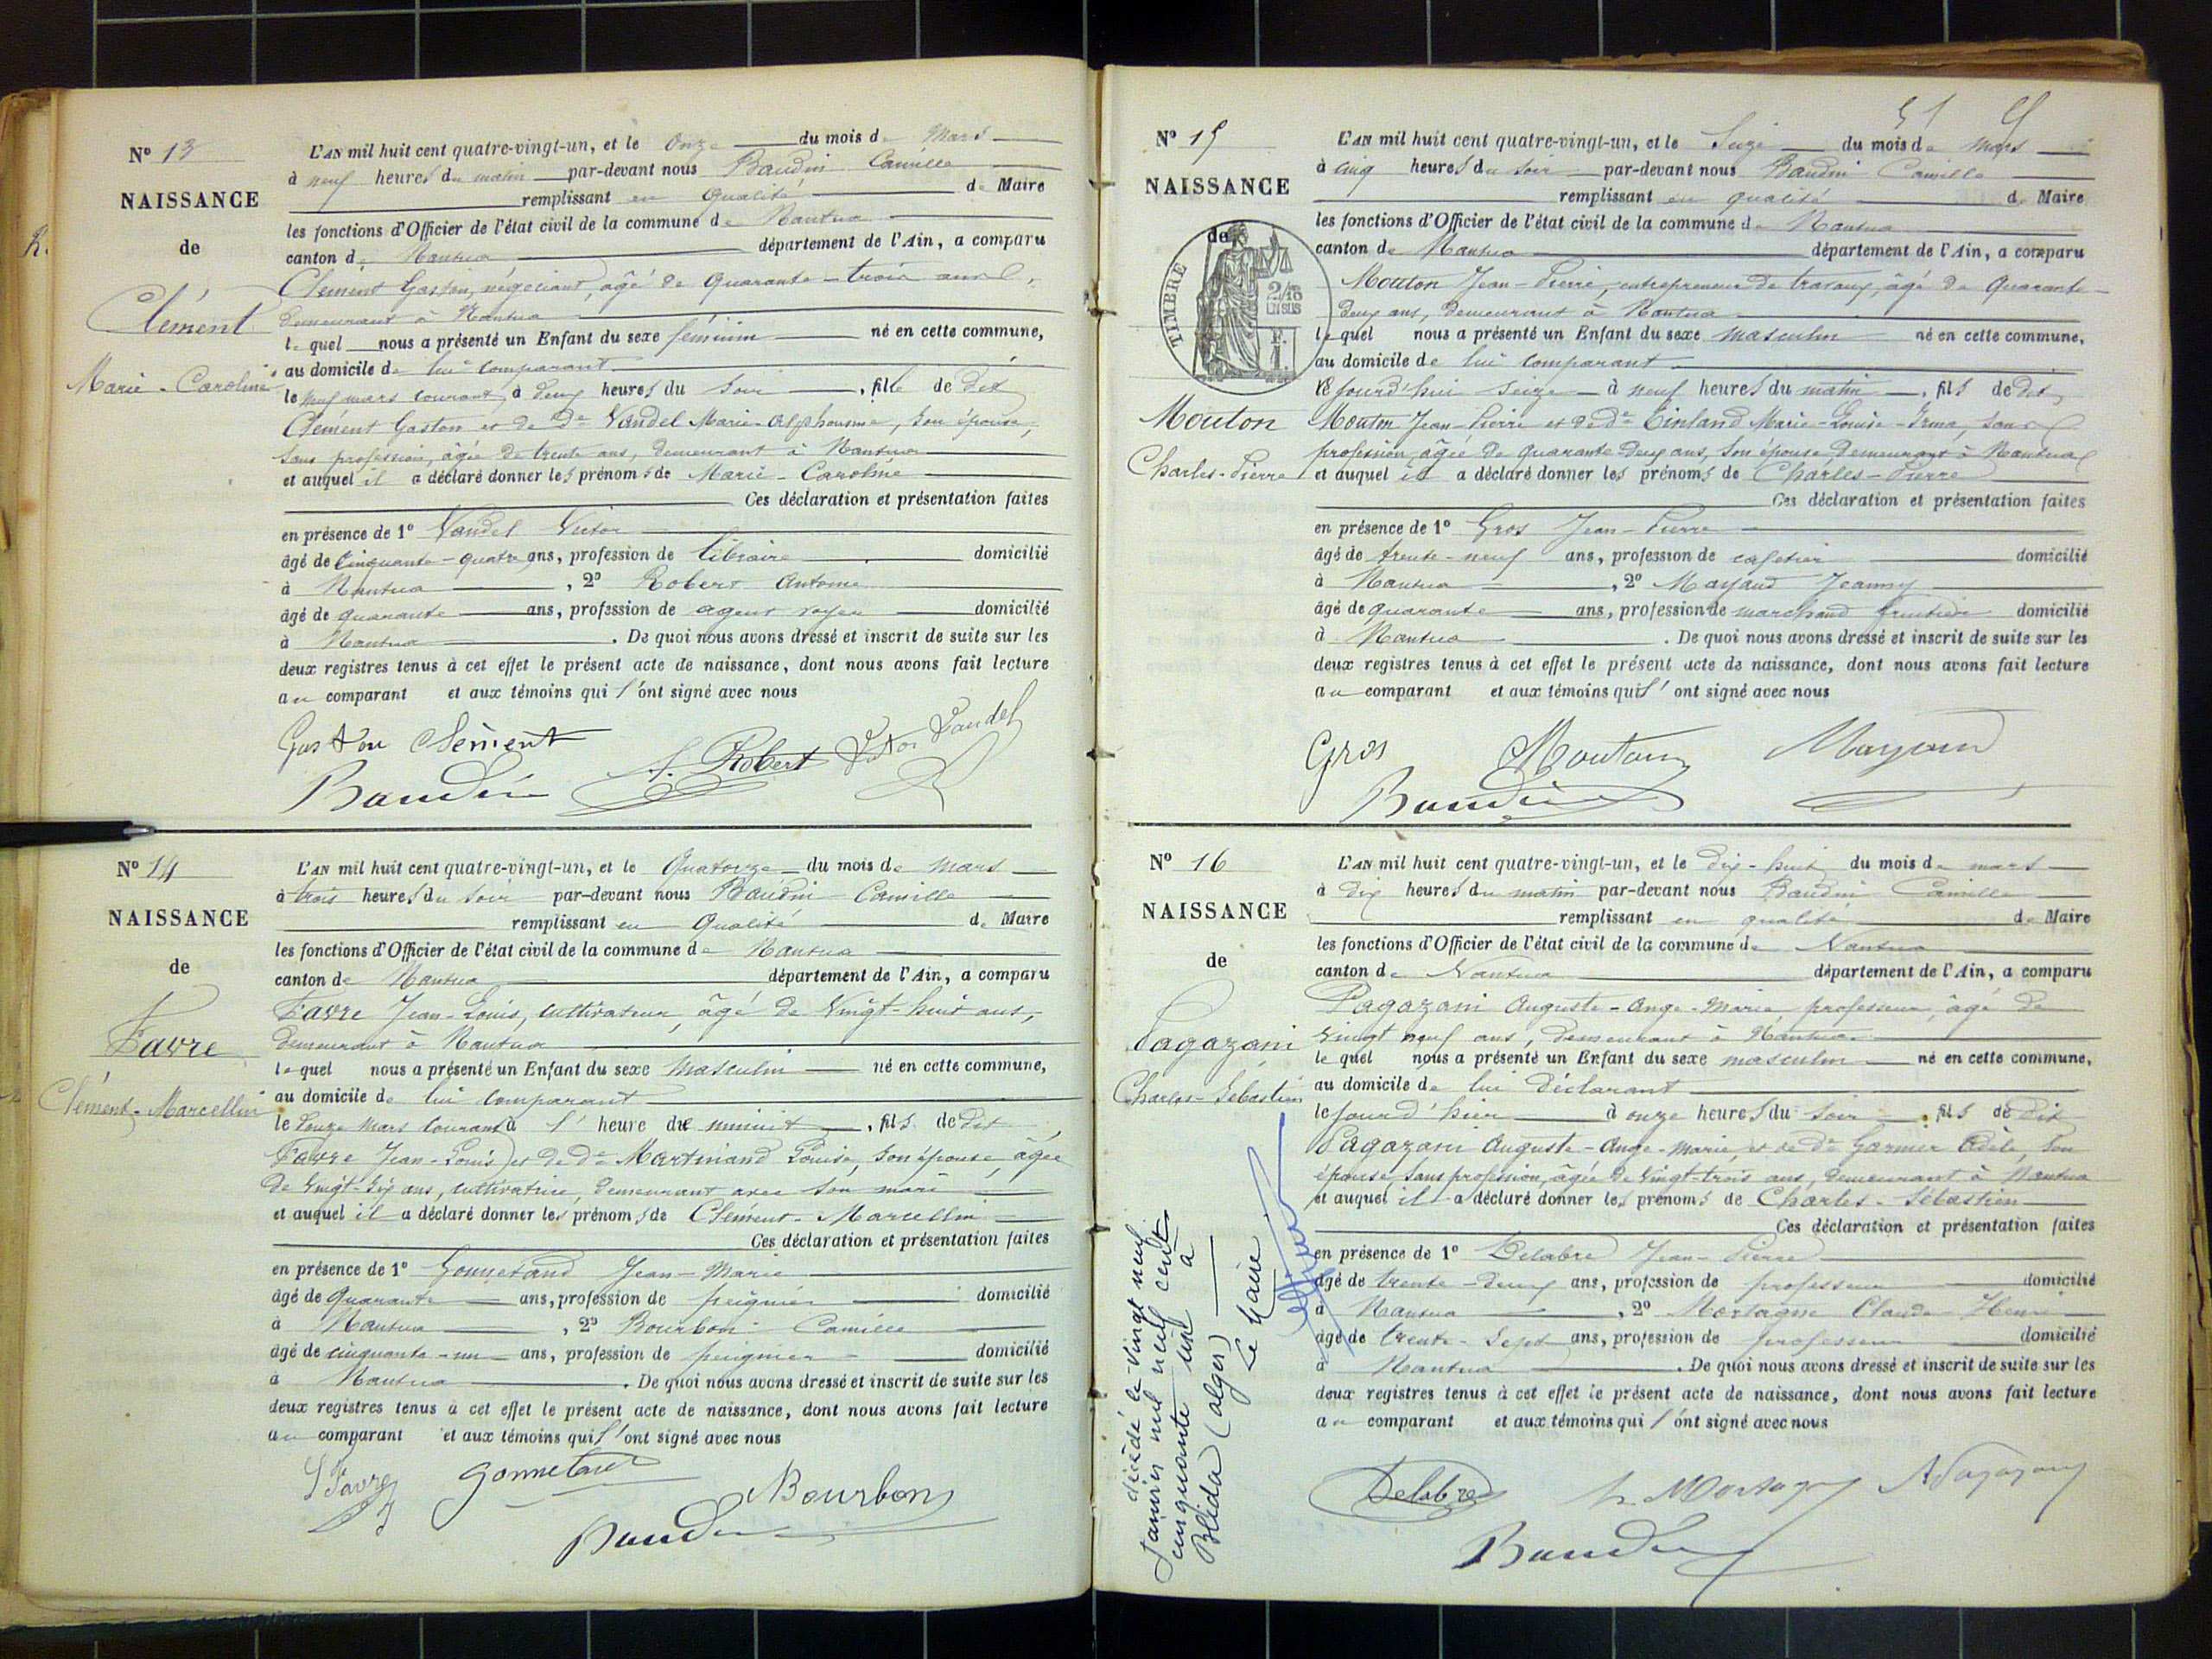 N° 13
NAISSANCE
de
Clément
Marie-Caroline
L'AN mil huit cent quatre-vingt-un, et le Onze du mois de Mars
à neuf heures du matin par-devant nous Baudin Camille
remplissant en Qualité de Maire
les fonctions d'Officier de l'état civil de la commune de Nantua
canton de Nantua département de l'Ain, a comparu
Clément Gaston, négociant, âgé de Quarante-trois ans,
demeurant à Nantua
lequel nous a présenté un Enfant du sexe féminin né en cette commune,
au domicile de lui comparant
le neuf mars courant, à deux heures du soir, fille de dit
Clément Gaston et de De Vandel Marie-Alphonsine, son épouse,
sans profession, âgée de trente ans, demeurant à Nantua
et auquel il a déclaré donner les prénoms de Marie-Caroline
Ces déclaration et présentation faites
en présence de 1° Vandel Victor
âgé de Cinquante-quatre ans, profession de libraire domicilié
à Nantua, 2° Robert Antoine
âgé de quarante ans, profession de agent voyer domicilié
à Nantua. De quoi nous avons dressé et inscrit de suite sur les
deux registres tenus à cet effet le présent acte de naissance, dont nous avons fait lecture
au comparant et aux témoins qui l'ont signé avec nous
Gaston Clément
A. Robert Victor Vandel
Baudin
N° 14
NAISSANCE
de
Favre
Clément-Marcellin
L'AN mil huit cent quatre-vingt-un, et le Quatorze du mois de Mars
à trois heures du soir par-devant nous Baudin Camille
remplissant en Qualité de Maire
les fonctions d'Officier de l'état civil de la commune de Nantua
canton de Nantua département de l'Ain, a comparu
Favre Jean-Louis, cultivateur, âgé de Vingt-huit ans,
demeurant à Nantua
lequel nous a présenté un Enfant du sexe Masculin né en cette commune,
au domicile de lui comparant
le douze Mars courant à l'heure de minuit, fils de dit
Favre Jean-Louis et de De Martinand Louise, son épouse, âgée
de vingt-six ans, cultivatrice, demeurant avec son mari
et auquel il a déclaré donner les prénoms de Clément-Marcellin
Ces déclaration et présentation faites
en présence de 1° Gonnetand Jean-Marie
âgé de Quarante ans, profession de peignier domicilié
à Nantua, 2° Bourbon Camille
âgé de cinquante-un ans, profession de peignier domicilié
à Nantua. De quoi nous avons dressé et inscrit de suite sur les
deux registres tenus à cet effet le présent acte de naissance, dont nous avons fait lecture
au comparant et aux témoins qui l'ont signé avec nous
Favre Gonnetand
Bourbon
Baudin
N° 15
NAISSANCE
de
TIMBRE
2/10
EN SUS
F.
1.
Mouton
Charles-Pierre
51
L'AN mil huit cent quatre-vingt-un, et le Seize du mois de Mars
à cinq heures du soir par-devant nous Baudin Camille
remplissant en qualité de Maire
les fonctions d'Officier de l'état civil de la commune de Nantua
canton de Nantua département de l'Ain, a comparu
Mouton Jean-Pierre, entrepreneur de travaux, âgé de Quarante-
deux ans, demeurant à Nantua
lequel nous a présenté un Enfant du sexe masculin né en cette commune,
au domicile de lui comparant
jourd'hui seize à neuf heures du matin, fils de dit
Mouton Jean-Pierre et de De Marie-Louise-Irma, sans
profession, âgée de quarante deux ans, son épouse demeurant à Nantua
et auquel il a déclaré donner les prénoms de Charles-Pierre
Ces déclaration et présentation faites
en présence de 1° Gros Jean-Pierre
âgé de trente-neuf ans, profession de cafetier domicilié
à Nantua, 2° Mayand Jeanny
âgé de quarante ans, profession de marchand fruitier domicilié
à Nantua. De quoi nous avons dressé et inscrit de suite sur les
deux registres tenus à cet effet le présent acte de naissance, dont nous avons fait lecture
au comparant et aux témoins qui l'ont signé avec nous
Gros Mouton Mayand
Baudin
N° 16
NAISSANCE
de
Pagazani
Charles-Sébastien
L'AN mil huit cent quatre-vingt-un, et le dix-huit du mois de mars
à dix heures du matin par-devant nous Baudin Camille
remplissant en qualité de Maire
les fonctions d'Officier de l'état civil de la commune de Nantua
canton de Nantua département de l'Ain, a comparu
Pagazani Auguste-Ange-Marie, professeur, âgé de
vingt neuf ans, demeurant à Nantua
lequel nous a présenté un Enfant du sexe masculin né en cette commune,
au domicile de lui déclarant
le jour d'hier à onze heures du soir, fils de dit
Pagazani Auguste-Ange-Marie, et de De Garnier Adèle, son
épouse, sans profession, âgée de vingt-trois ans, demeurant à Nantua
et auquel il a déclaré donner les prénoms de Charles-Sébastien
Ces déclaration et présentation faites
en présence de 1° Delabre Jean-Pierre
âgé de trente-deux ans, profession de professeur domicilié
à Nantua, 2° Mortagne Claude Henri
âgé de trente-sept ans, profession de professeur domicilié
à Nantua. De quoi nous avons dressé et inscrit de suite sur les
deux registres tenus à cet effet le présent acte de naissance, dont nous avons fait lecture
au comparant et aux témoins qui l'ont signé avec nous
Delabre h. Mortagne A Pagazani
Baudin
décédé le vingt neuf
Janvier mil neuf cent
cinquante un à
Blida (alger)
Le Maire